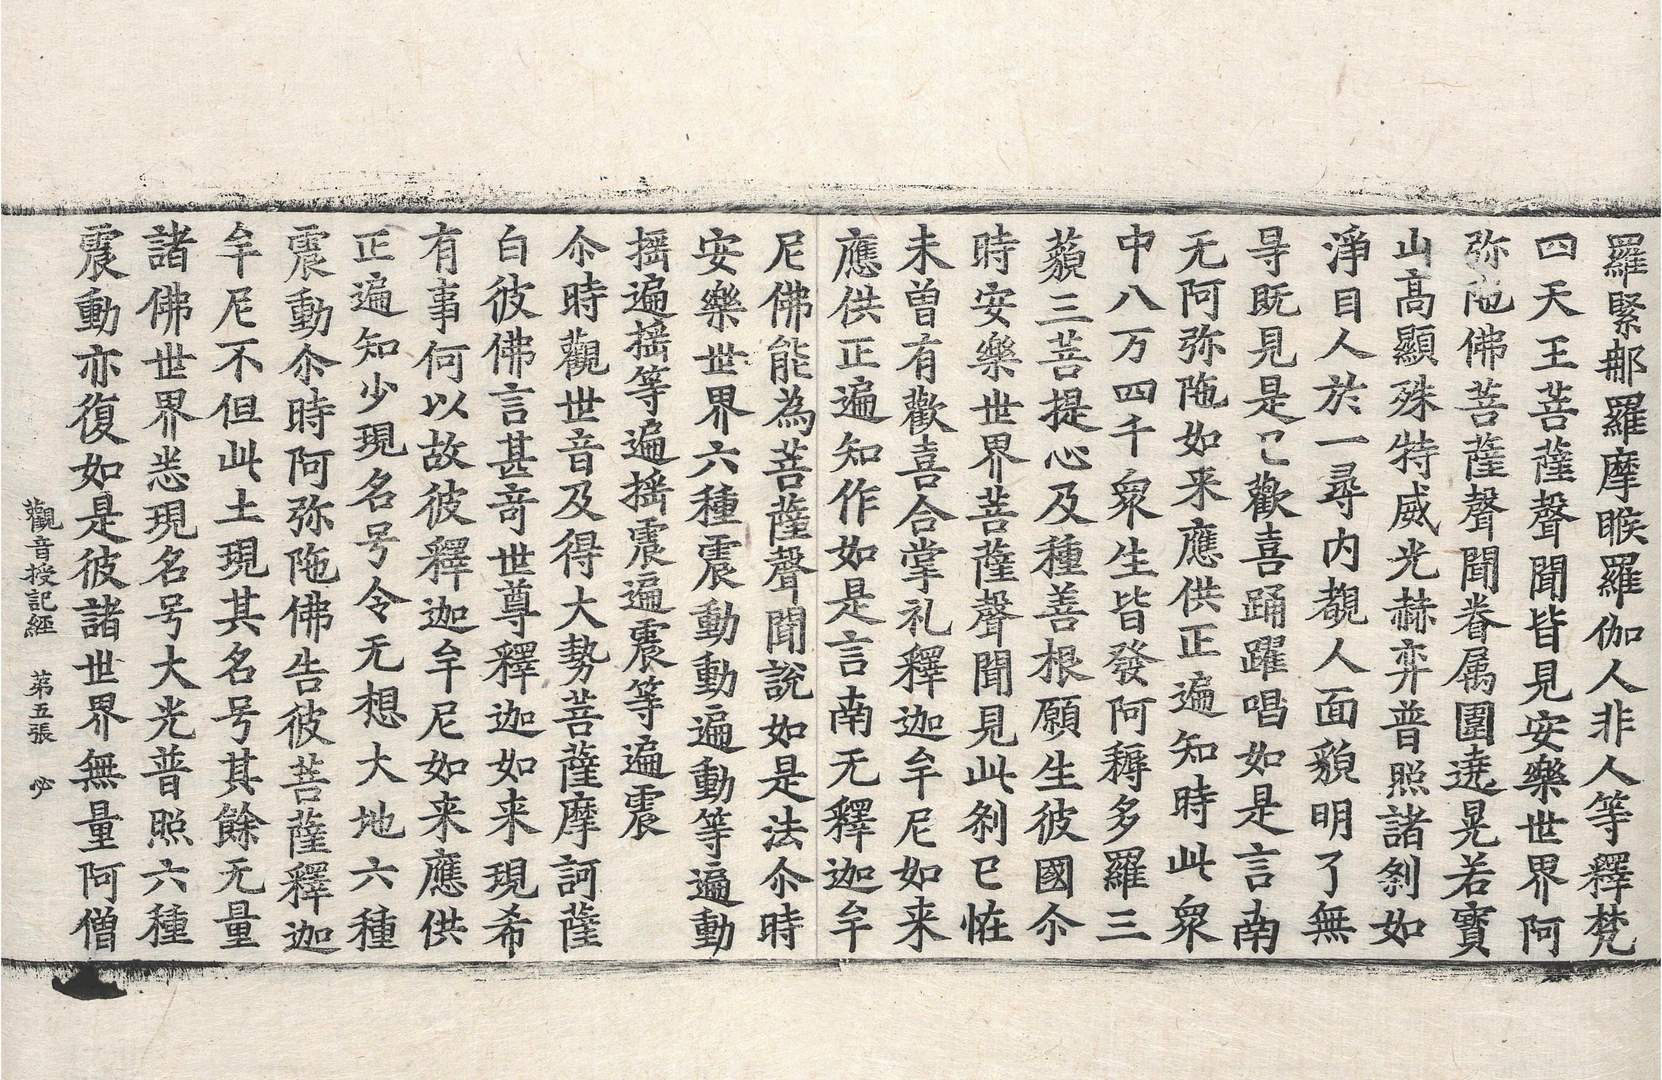 羅緊那羅摩睺羅伽人非人等釋梵
四天王菩薩聲聞皆見安樂世界阿
弥陁佛菩薩聲聞眷属圍遶晃若寳
山高顯殊特威光赫弈普照諸剎如
淨目人於一尋内覩人面貌明了無
㝵既見是已歡喜踊躍唱如是言南
无阿弥陁如来應供正遍知時此衆
中八万四千衆生皆發阿耨多羅三
藐三菩提心及種善根願生彼國尒
時安樂世界菩薩聲聞見此剎已恠
未曾有歡喜合掌礼釋迦牟尼如来
應供正遍知作如是言南无釋迦牟
尼佛能為菩薩聲聞說如是法尒時
安樂世界六種震動動遍動等遍動
揺遍揺等遍揺震遍震等遍震
尒時觀世音及得大勢菩薩摩訶薩
白彼佛言甚竒世尊釋迦如来現希
有事何以故彼釋迦牟尼如来應供
正遍知少現名号令无想大地六種
震動尒時阿弥陁佛告彼菩薩釋迦
牟尼不但此土現其名号其餘无量
諸佛世界悉現名号大光普照六種
震動亦復如是彼諸世界無量阿僧
觀音授記經 苐五張 必